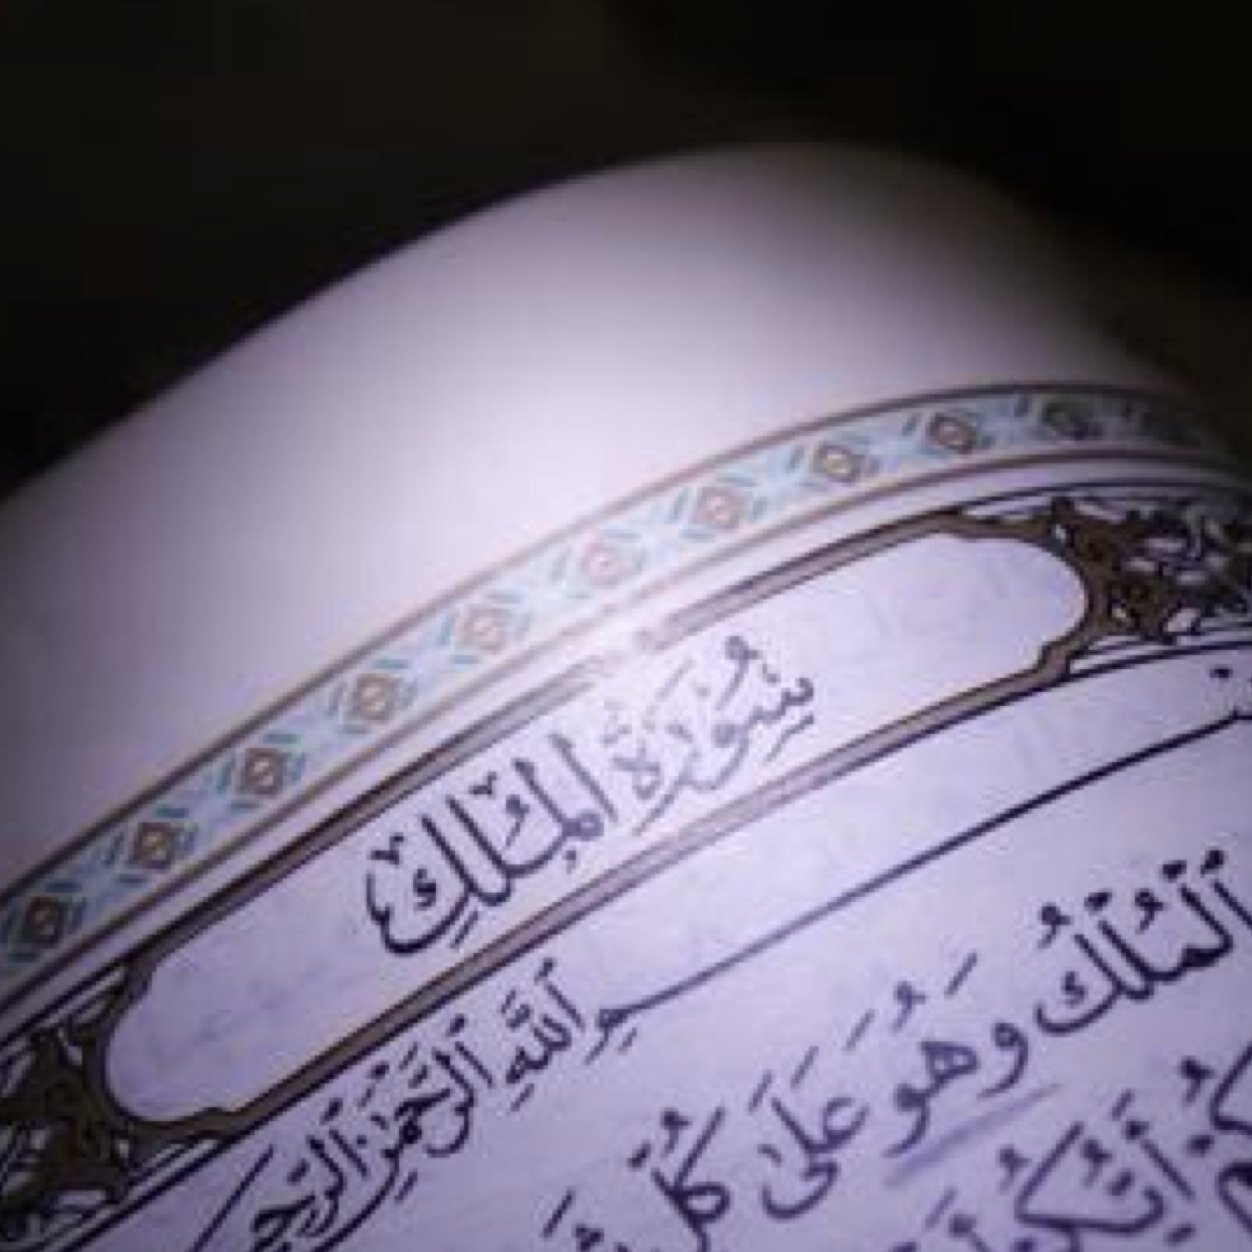 سُورَةُ الْمُلْكِ
بِسْمِ ٱللَّهِ ٱلرَّحْمَٰنِ ٱلرَّحِيمِ
ٱلْمُلْكُ وَهُوَ عَلَىٰ كُلِّ
أَيُّكُمْ